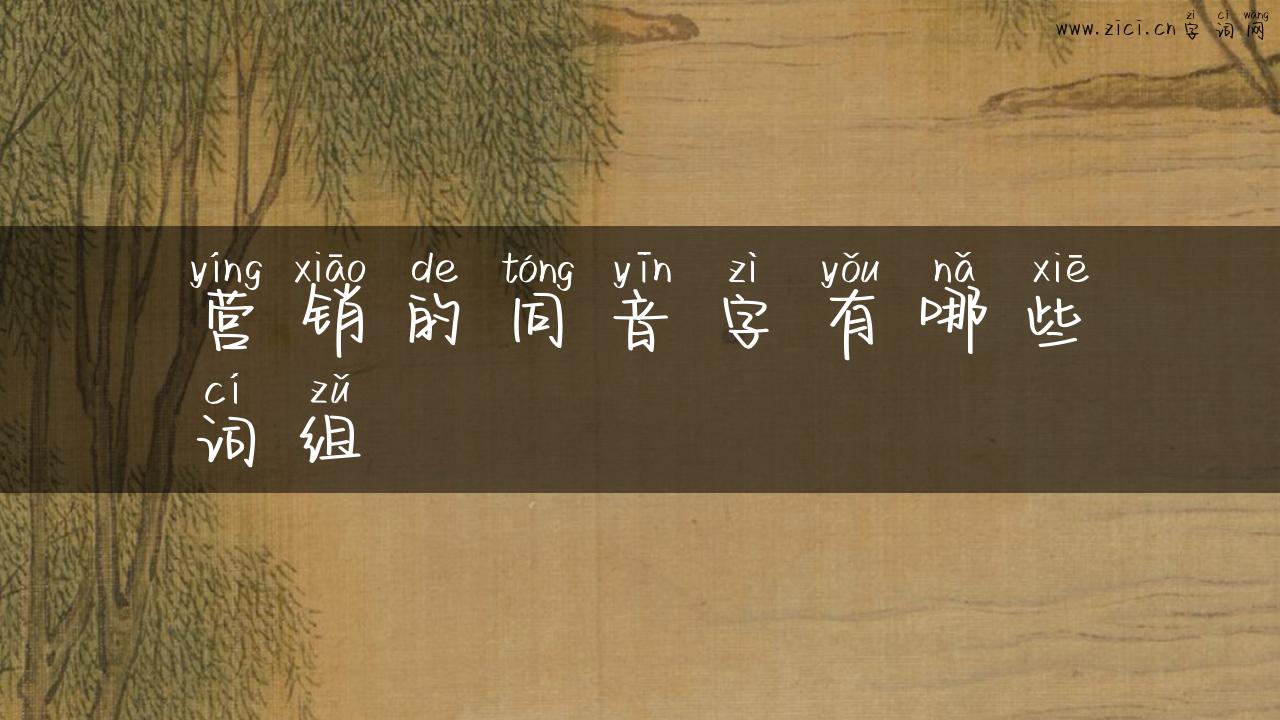 zì cí wǎng
www.zici.cn字词网
yíng xiāo de tóng yīn zì yǒu nǎ xiē
营销的同音字有哪些
cí zǔ
词组